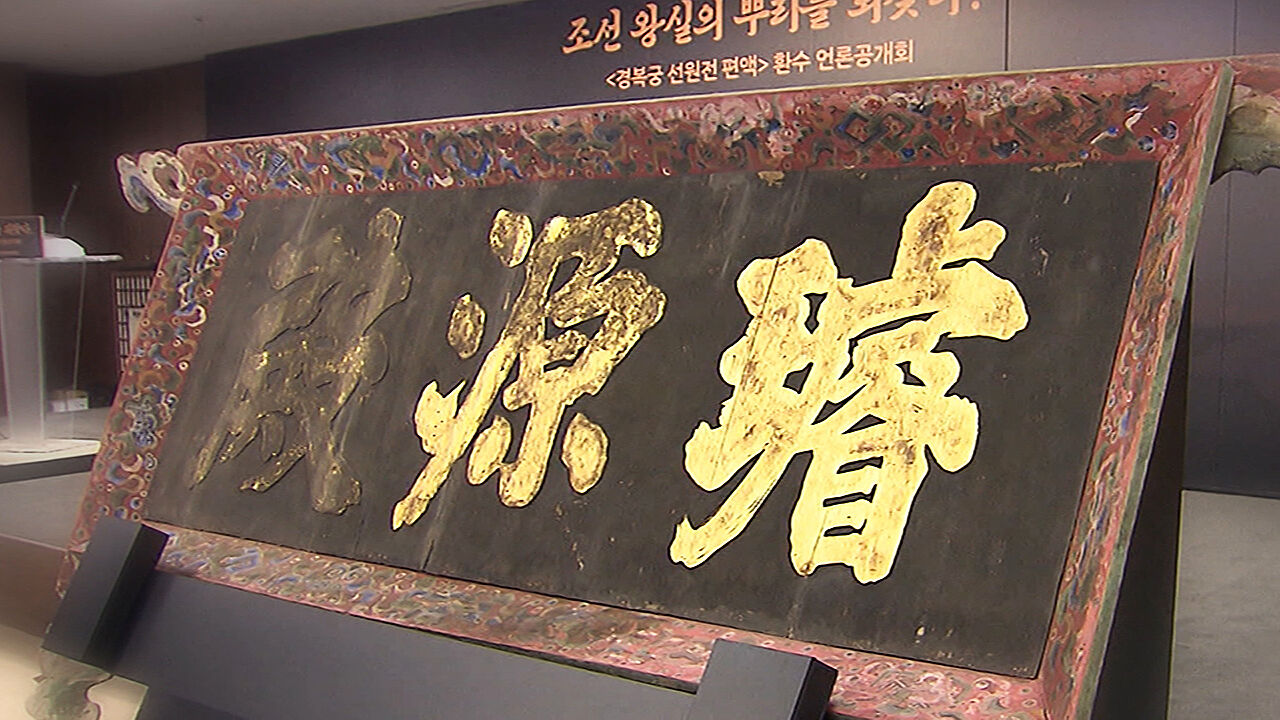 조선 왕실의 뿌리를 되찾다!
<경복궁 선원전 편액> 환수 언론공개회
璿源殿